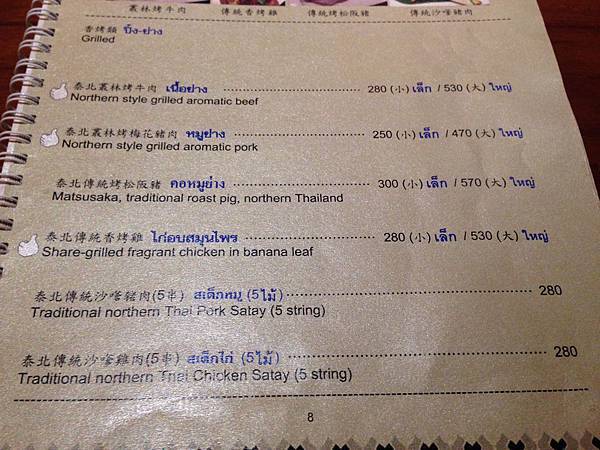 叢林烤牛肉 傳統香烤雞 傳統烤松阪豬 傳統沙嗲豬肉
香烤類 ปิ้ง-ย่าง
Grilled
泰北叢林烤牛肉 เนื้อย่าง 280 (小) เล็ก / 530 (大) ใหญ่
Northern style grilled aromatic beef
泰北叢林烤梅花豬肉 หมูย่าง 250 (小) เล็ก / 470 (大) ใหญ่
Northern style grilled aromatic pork
泰北傳統烤松阪豬 คอหมูย่าง 300 (小) เล็ก / 570 (大) ใหญ่
Matsusaka, traditional roast pig, northern Thailand
泰北傳統香烤雞 ไก่อบสมุนไพร 280 (小) เล็ก / 530 (大) ใหญ่
Share-grilled fragrant chicken in banana leaf
泰北傳統沙嗲豬肉(5串) สเต็กหมู (5ไม้) 280
Traditional northern Thai Pork Satay (5 string)
泰北傳統沙嗲雞肉(5串) สเต็กไก่ (5ไม้) 280
Traditional northern Thai Chicken Satay (5 string)
8